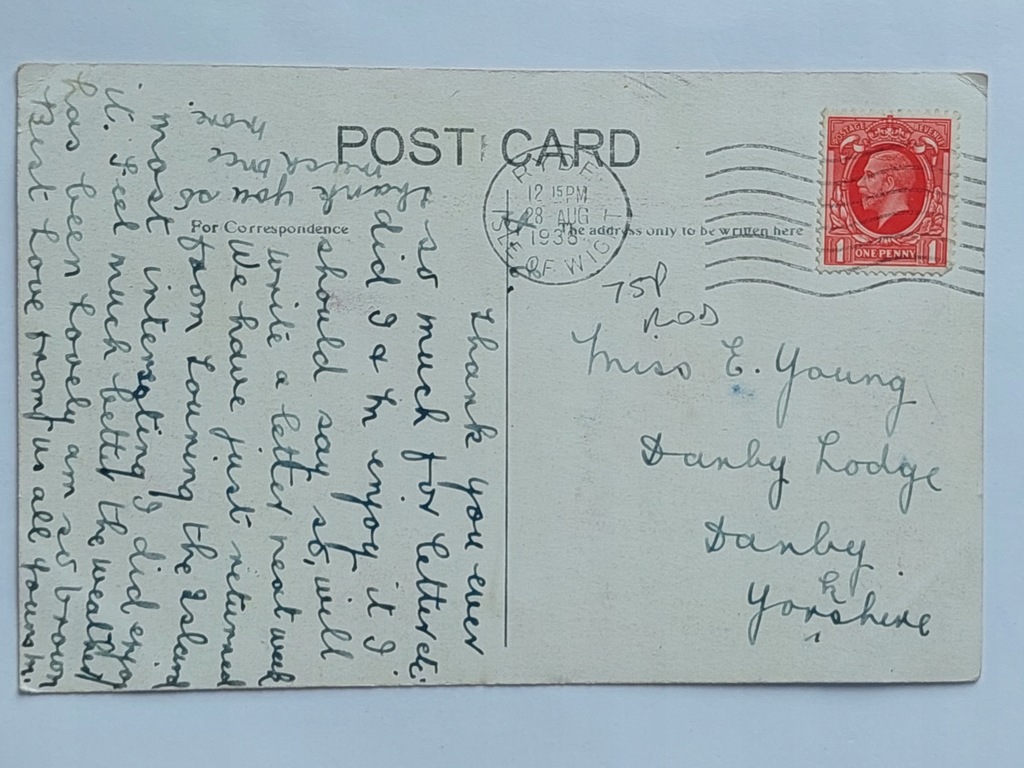 POST CARD
For Correspondence
The address only to be written here
RYDE
12 15PM
28 AUG
193
ISLE OF WIG
POSTAGE REVENUE
1 ONE PENNY 1
75P
Miss E. Young
Danby Lodge
Danby.
Yorkshire
Thank you ever
so much for letter etc:
did I & M enjoy it I
should say so, will
write a letter next week
We have just returned
from Touring the Island
most interesting I did enjoy
it. Feel much better the weather
has been Lovely am so brown
Best Love from us all yours m.
thank you so
much once
more.